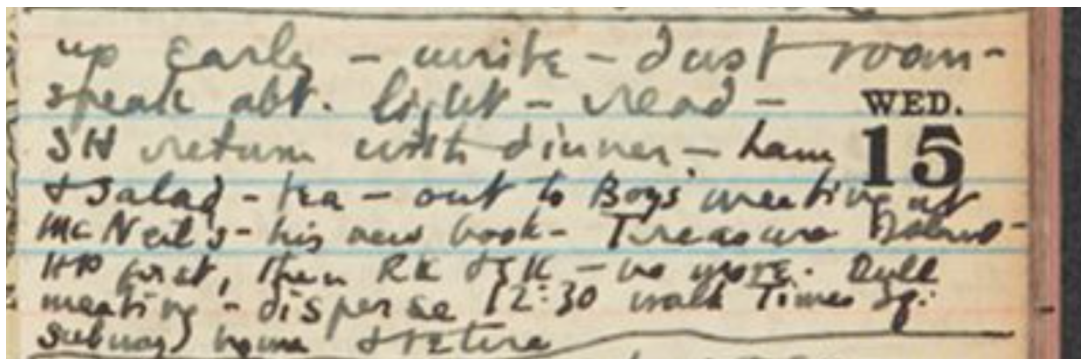 up early - write - dust room -
speak abt. light - read -
WED.
SH return with dinner - ham
15
& salad - tea - out to Boys' meeting at
McNeil's - his new book - Treasure Island -
HP first, then RK & GK - no more. Dull
meeting - disperse 12:30 walk Times Sq.
subway home & retire